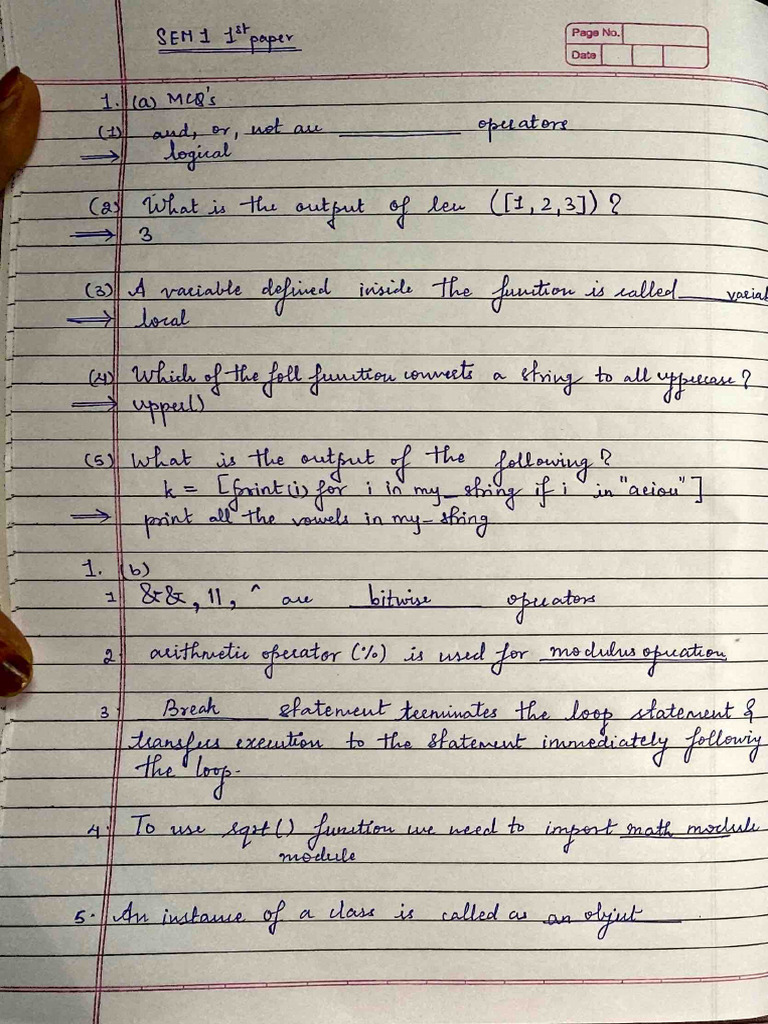 SEM 1 1st paper
Page No.
Date
1. (a) MCQ's
(1) and, or, not are ________ operators
⇒ logical
(2) What is the output of len ([1, 2, 3]) ?
⇒ 3
(3) A variable defined inside the function is called ____ variab
⇒ local
(4) Which of the foll function converts a string to all uppercase ?
⇒ upper()
(5) What is the output of the following ?
k = [print(i) for i in my_string if i in "aeiou"]
⇒ print all the vowels in my-string
1. (b)
1 &&, ||, ^ are bitwise operators
2 arithmetic operator (%) is used for modulus operation
3. Break statement terminates the loop statement &
transfers execution to the statement immediately following
the loop.
4. To use sqrt() function we need to import math module
module
5. An instance of a class is called as an object.